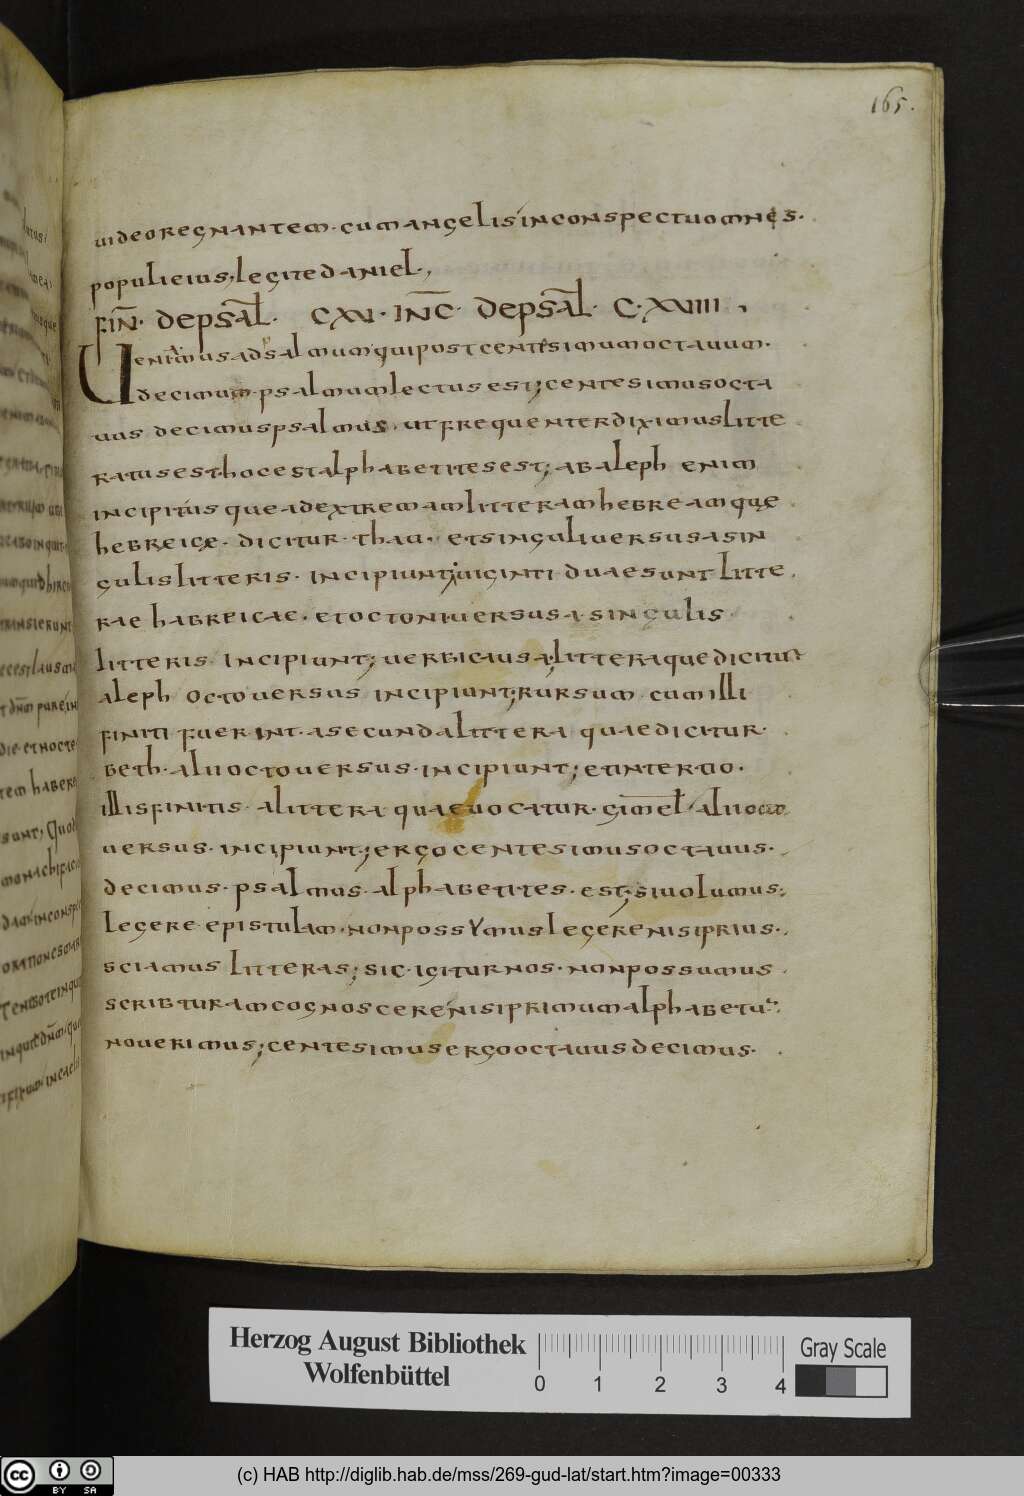 165.
uideoregnantem. cum angelis inconspectuomnes.
populieius; legitedaniel,
FIN̄. DEPSAL̄. CXV. INC̄. DEPSAL̄. C.XVIIII,
Uenimus adpsalmum qui post centesimumoctauum.
decimum. psalmum lectus est; centesimus octa
uus decimus psalmus. ut frequenter diximus litte
ratus est. hoc est alphabetites est; ab aleph enim
incipit usque ad extremam litteram hebream que
hebreice. dicitur thau. et singuli uersus a sin
gulis litteris. incipiunt; uiginti duae sunt litte.
rae habreicae. et octoni uersus a singulis
litteris incipiunt; uerbi causa; littera que dicitur
aleph octo uersus incipiunt; rursum cum illi
finiti fuerint. a secunda littera quae dicitur.
beth. alii octo uersus. incipiunt; et in tertio.
illis finitis a littera quae uocatur. gimel. alii octo
uersus. incipiunt; ergo centesimus octauus.
decimus. psalmus. alphabetites. est; si uolumus;
legere epistulam. non possymus legere nisi prius.
sciamus litteras; sic. igitur nos. non possumus
scribturam cognoscere nisi primum alphabetu
nouerimus; centesimus ergo octauus decimus.
Herzog August Bibliothek
Wolfenbüttel
0 1 2 3 4
Gray Scale
cc BY SA
(c) HAB http://diglib.hab.de/mss/269-gud-lat/start.htm?image=00333